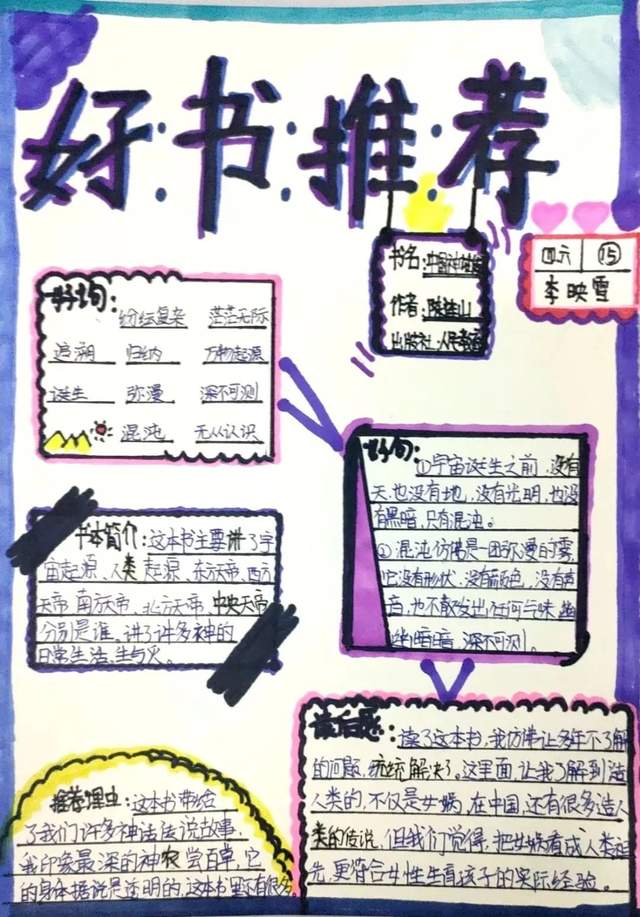 好·书·推·荐
书名:中国神话
作者:陈连山
出版社:人民教育
四六 ⑮
李映雪
好词:纷纭复杂 茫茫无际
追溯 归纳 万物起源
诞生 弥漫 深不可测
混沌 无从认识
好句:
①宇宙诞生之前,没有
天,也没有地,没有光明,也没
有黑暗,只有混沌。
②混沌仿佛是一团弥漫的雾,
它没有形状,没有颜色,没有声
音,也不散发出任何气味,幽
幽暗暗,深不可测。
书本简介:这本书主要讲了宇
宙起源、人类起源、东方天帝、西方
天帝、南方天帝、北方天帝、中央天帝
分别是谁,讲了许多神的
日常生活,生与火。
读后感:读了这本书,我仿佛让多年不了解
的问题,统统解决了。这里面,让我了解到造
人类的,不仅是女娲,在中国,还有很多造人
类的传说,但我们觉得,把女娲看成人类祖
先,更符合女性生育孩子的实际经验。
推荐理由:这本书带给
了我们许多神话传说故事,
我印象最深的神农尝百草,它
的身体据说是透明的,这本书里还有很多